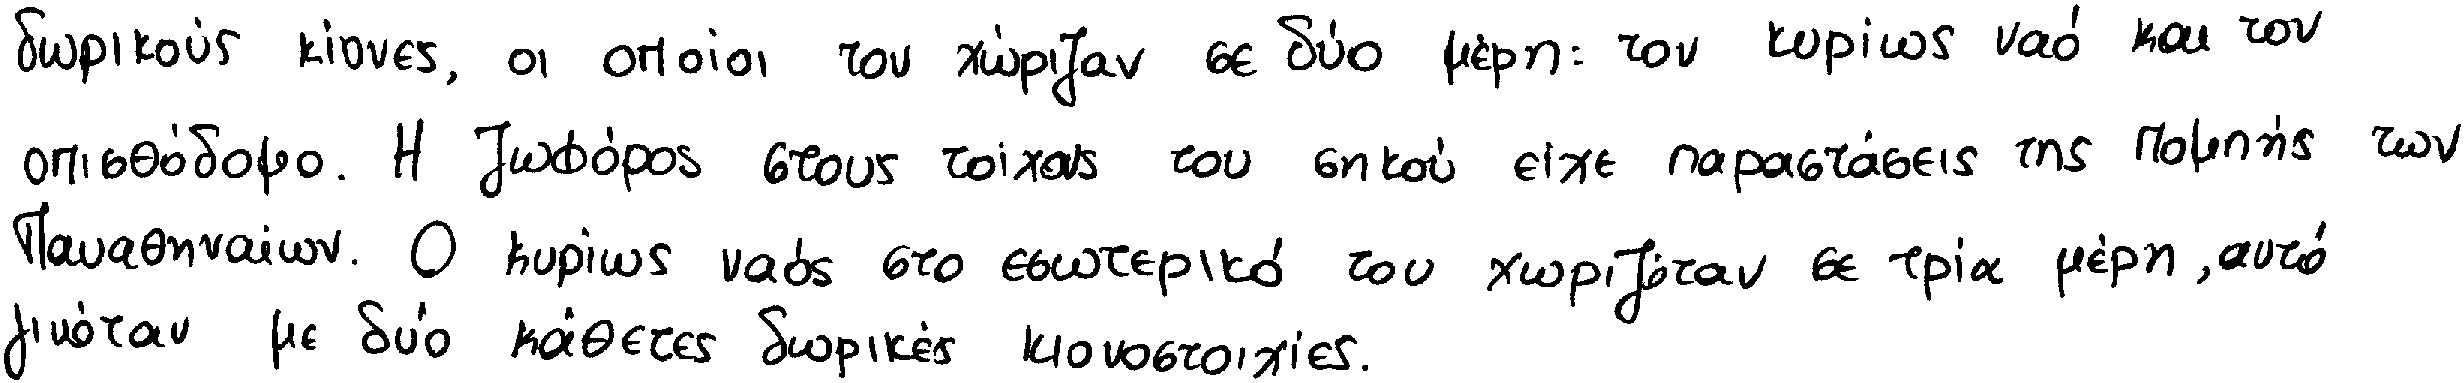 δωρικούς κίονες, οι οποίοι τον χώριζαν σε δύο μέρη: τον κυρίως ναό και τον
οπισθόδομο. Η ζωφόρος στους τοίχους του σηκού είχε παραστάσεις της πομπής των
Παναθηναίων. Ο κυρίως ναός στο εσωτερικό του χωριζόταν σε τρία μέρη, αυτό
γινόταν με δύο κάθετες δωρικές κιονοστοιχίες.